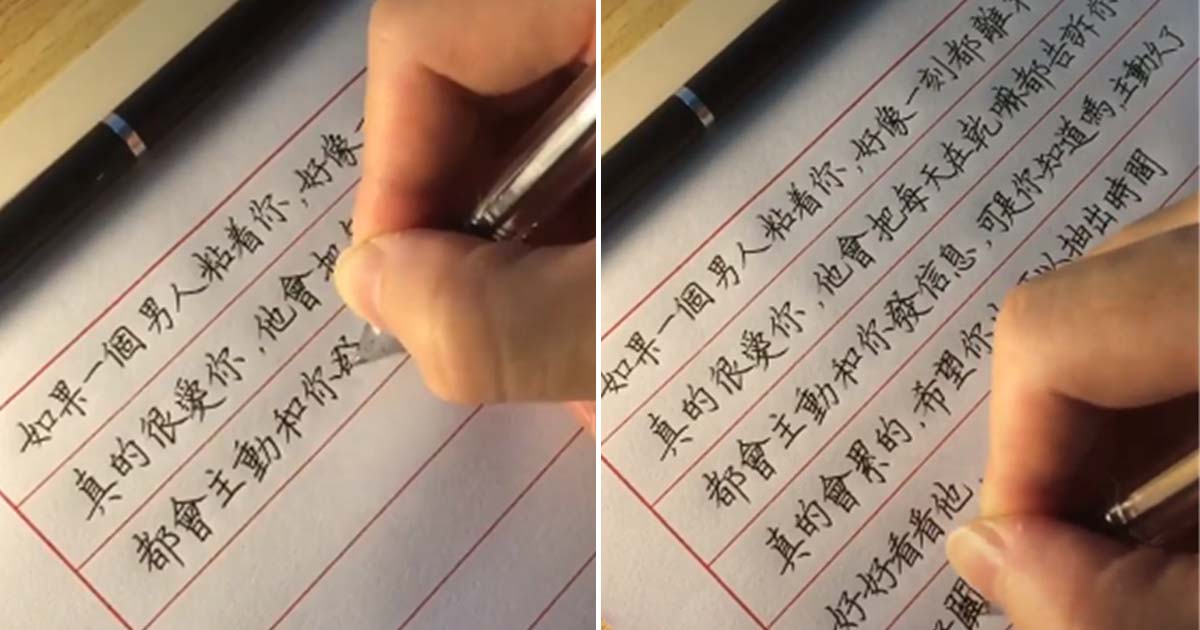 如果一個男人粘着你,好像
真的很愛你,他會把
都會主動和你
如果一個男人粘着你,好像一刻都離
真的很愛你,他會把每天在乾嘛都告訴你
都會主動和你發信息,可是你知道嗎,主動久了
真的會累的,希望你 以抽出時間
好好看看他,